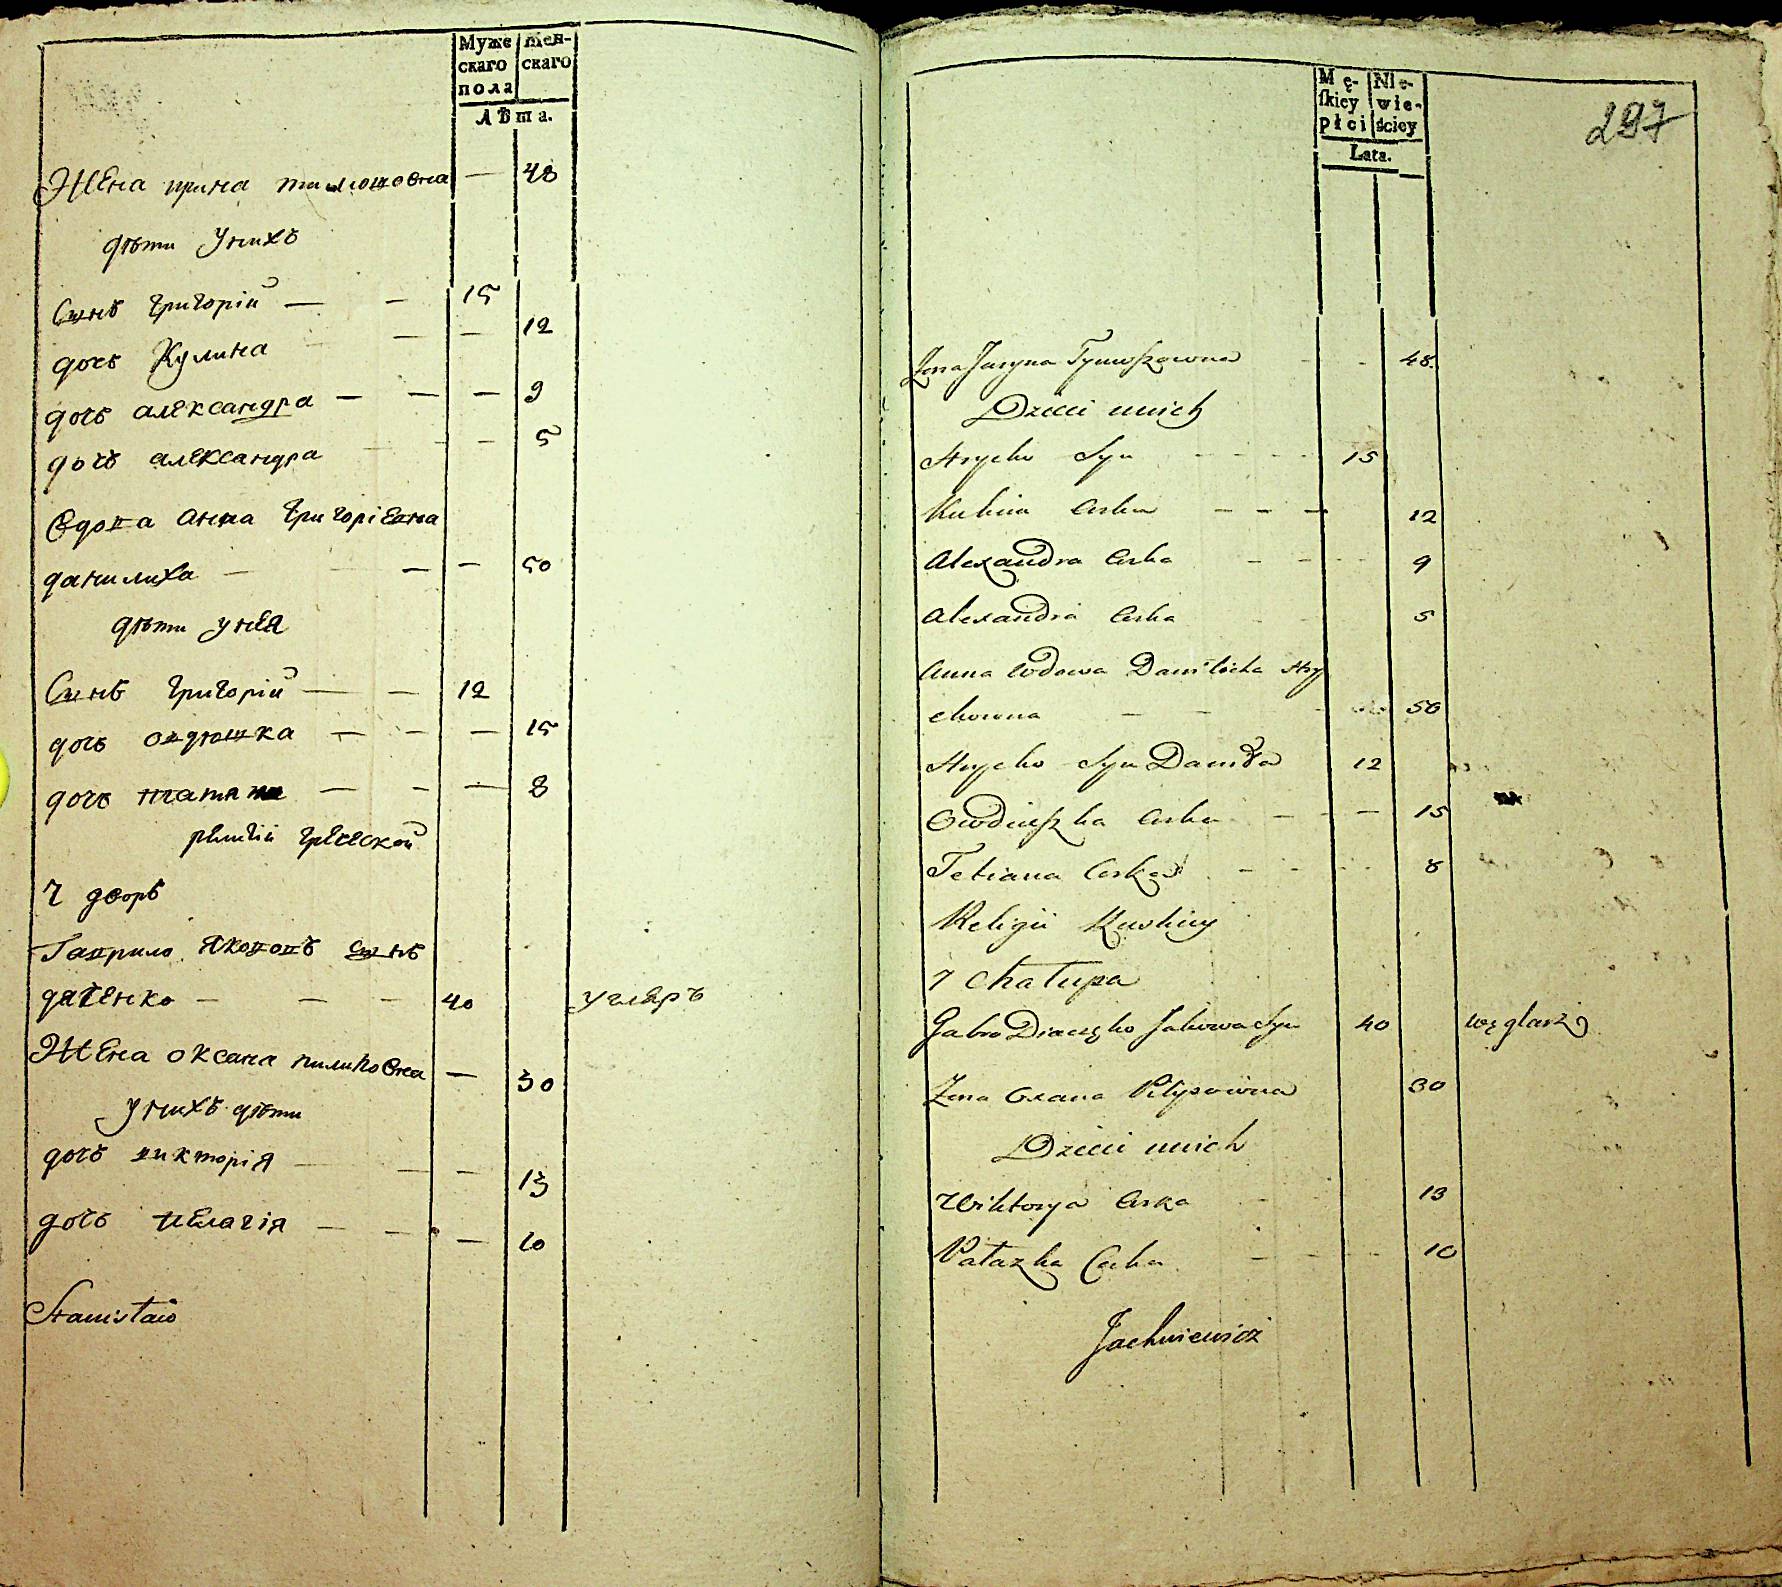 Муже жен-
скаго скаго
пола
лѣта.
Жена ирина тимошовна — 48
дѣти у нихъ
Сынъ григорій — — 15
дочь Кулина — — 12
дочь александра — — — 9
дочь александра — 5
Вдова анна григоріевна
данилиха — — — 50
дѣти у нея
Сынъ григорій — — 12
дочь овдюшка — — — 15
дочь татяна — — — 8
релігіи греческой
7 дворъ
Гаврило якововъ сынъ
дяченко — — — 40 углярь
Жена оксана пилиповна — 30
у нихъ дѣти
дочь викторія — — — 13
дочь пелагія — — — 10
Stanisław
Mę- Nie-
skiey wie-
płci ściey
Lata.
297
Żona Jaryna Tymoszowna - - 48.
Dzieci unich
Hrycko Syn - - - - 15
Kulina Corka - - - 12
Alexandra Corka - - - - 9
Alexandra Corka 5
Anna Wdowa Daniłicha Hry
chowna - - 50
Hrycko Syn Daniła 12
Owdiuszka Corka - - - 15
Tetiana Corka - - - - 8
Religii Ruskiey
7 Chałupa
Gabro Diaczęko Jakowa Syn 40 węglarz
Żona Oxana Pilipowna 30
Dzieci unich
Wiktorya Corka - 13
Pałazka Corka - - - - 10
Jachniewicz